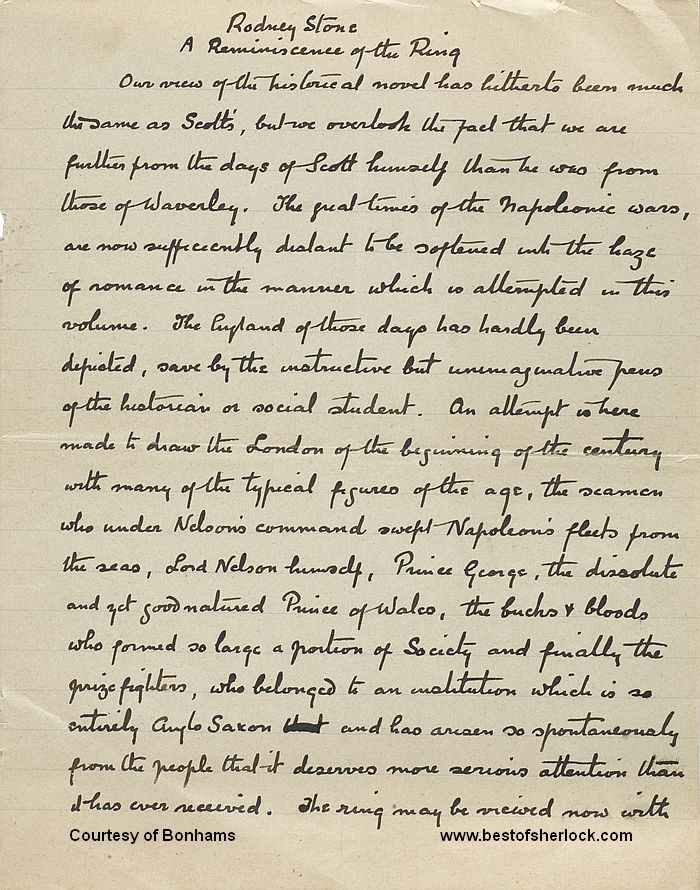 Rodney Stone
A Reminiscence of the Ring
Our view of the historical novel has hitherto been much
the same as Scott's, but we overlook the fact that we are
further from the days of Scott himself than he was from
those of Waverley. The great times of the Napoleonic wars,
are now sufficiently distant to be softened into the haze
of romance in the manner which is attempted in this
volume. The England of those days has hardly been
depicted, save by the instructive but unimaginative pens
of the historian or social student. An attempt is here
made to draw the London of the beginning of the century
with many of the typical figures of the age, the seamen
who under Nelson's command swept Napoleon's fleets from
the seas, Lord Nelson himself, Prince George, the dissolute
and yet goodnatured Prince of Wales, the bucks & bloods
who formed so large a portion of Society and finally the
prizefighters, who belonged to an institution which is so
entirely Anglo Saxon and has arisen so spontaneously
from the people that it deserves more serious attention than
it has ever received. The ring may be viewed now with
Courtesy of Bonhams
www.bestofsherlock.com